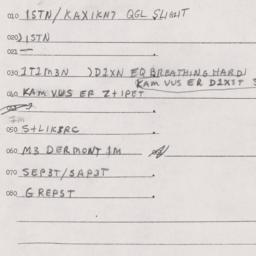 010 1STN/KAXIKN7 QGL SLIGHT
020 )1STN
021 —
030 1T1M3N )D1XN EQ BREATHING HARD)
KAM VWS ER D1X3T
040 KAM VWS ER Z+1PET
050 S+LIK3RC
060 M3 DERMONT 1M
070 SEP3T/SAP3T
080 GREPST